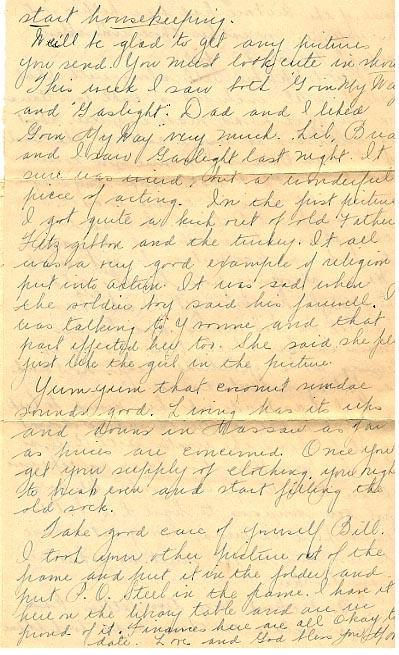 start housekeeping.
We'll be glad to get any pictures
you send. You must look cute in
This week I saw both "Goin My Wa
and "Gaslight". Dad and I liked
Goin My Way" very much. Lib,
and I saw Gaslight last night. It
sure was weird, but a wonderful
piece of acting. In the first picture
I got quite a kick out of old Father
Fitzgibbon and the turkey. It all
was a very good example of religion
put into action. It was sad when
the soldier boy said his farewell. I
was talking to Yvonne and that
part affected her too. She said she fel
just like the girl in the picture.
Yum yum that coconut sundae
sounds good. Living has its ups
and downs in Nassau as far
as prices are concerned. Once you
get your supply of clothing, you migh
to break even and start filling the
old sock.
Take good care of yourself Bill.
I took your other picture out of the
frame and put it in the folder and
put P. O. Steel in the frame. I have it
here on the library table and are we
proud of it. Finances here are all okay to
date. Love and God bless you